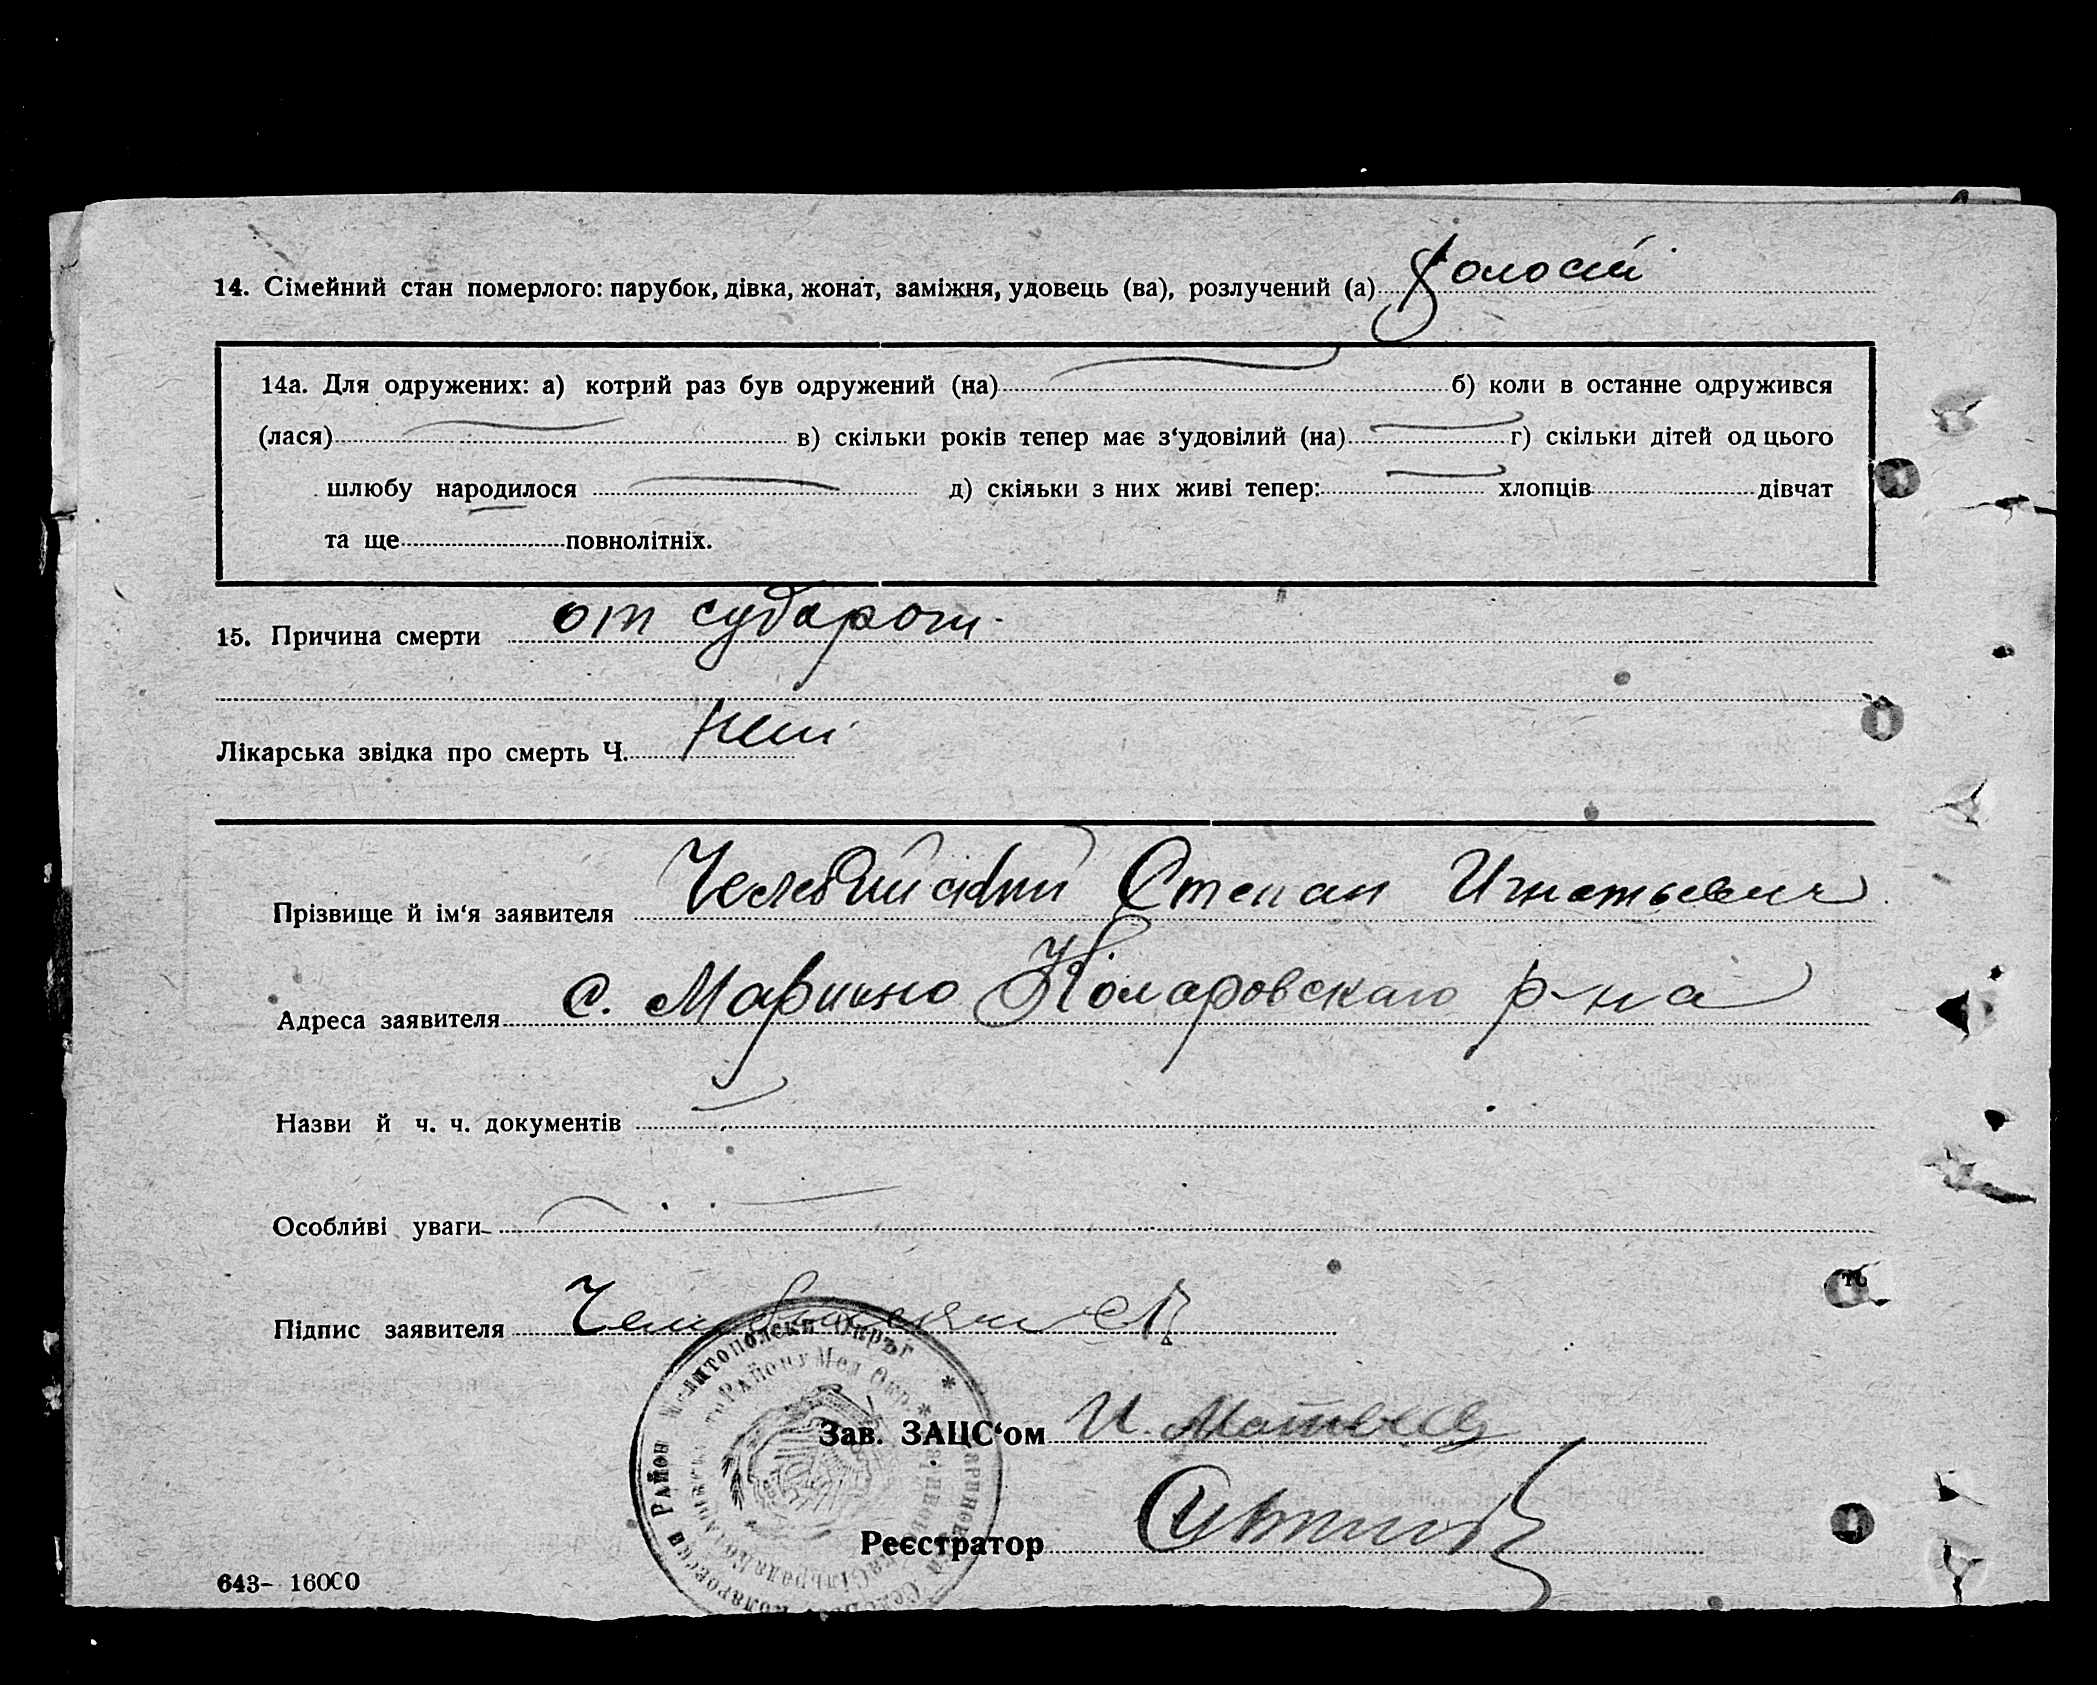 14. Сімейний стан померлого: парубок, дівка, жонат, заміжня, удовець (ва), розлучений (а) холостй
14а. Для одружених: а) котрий раз був одружений (на) б) коли в останне одружився
(лася) в) скільки років тепер має з‘удовілий (на) г) скільки дітей од цього
шлюбу народилося д) скільки з них живі тепер: хлопців дівчат
та ще повнолітніх.
15. Причина смерти от судорог
Лікарська звідка про смерть Ч. нет
Прізвище й ім‘я заявителя Челебийский Степан Игнатьевич
Адреса заявителя с. Марьино Коларовскаго р-на
Назви й ч. ч. документів
Особливі уваги
Підпис заявителя
Зав. ЗАЦС‘ом И.
Реєстратор
643– 16000